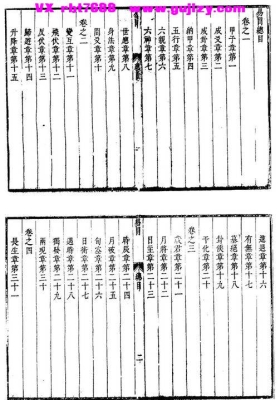 VX-rht7688 www.gojizy.com
易冒總目
卷之一
甲子章第一
成爻章第二
成卦章第三
納甲章第四
五行章第五
六親章第六
六神章第七
世應章第八
身法章第九
間爻章第十
卷之二
變互章第十一
飛伏章第十二
反伏章第十三
歸遊章第十四
升降章第十五
進退章第十六
有無章第十七
墓絕章第十八
卦候章第十九
干化章第二十
卷之三
君章第二十一
月將章第二十二
日主章第二十三
易冒
總目
二
時辰章第二十四
月破章第二十五
旬空章第二十六
日衝章第二十七
時章第二十八
獨發章第二十九
兩現章第三十
卷之四
長生章第三十一